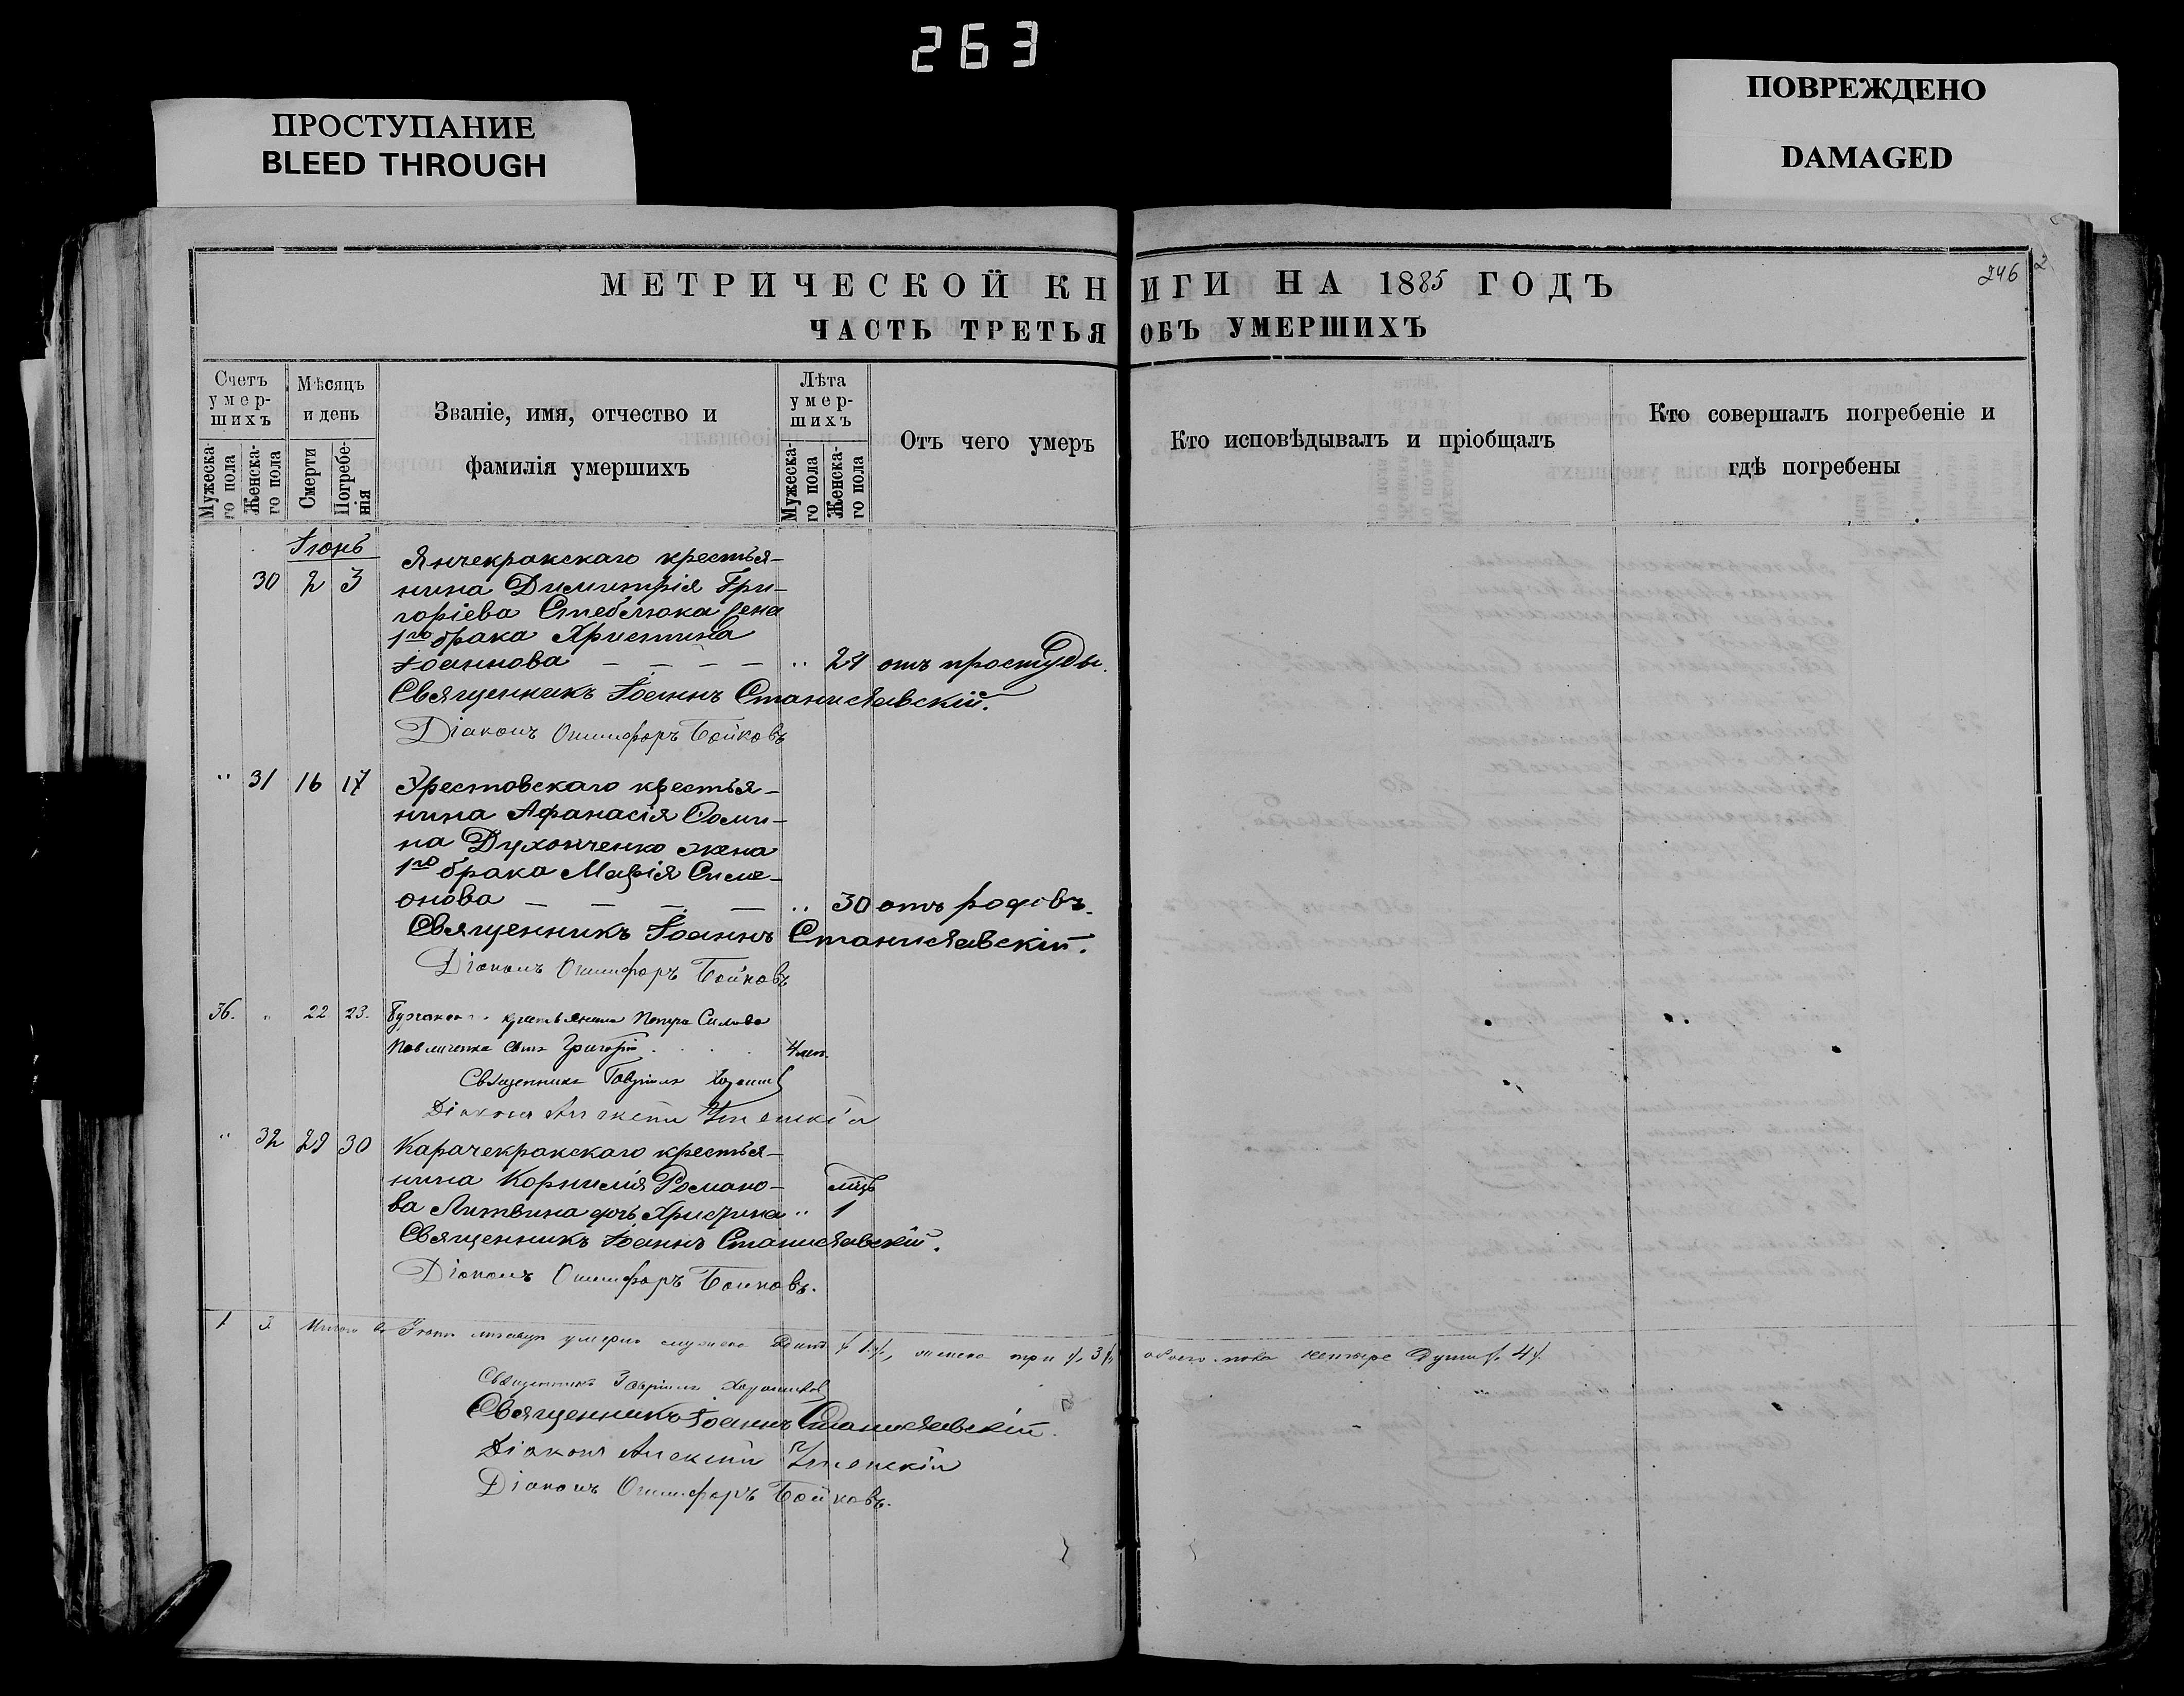 263
ПРОСТУПАНИЕ
BLEED THROUGH
ПОВРЕЖДЕНО
DAMAGED
246
МЕТРИЧЕСКОЙ КНИГИ НА 1885 ГОДЪ
ЧАСТЬ ТРЕТЬЯ ОБЪ УМЕРШИХЪ
Счетъ умер-шихъ
Мужеска-го пола
Женска-го пола
Мѣсяцъ и день
Смерти
Погребе-нія
Званіе, имя, отчество и фамилія умершихъ
Лѣта умер-шихъ
Мужеска-го пола
Женска-го пола
Отъ чего умеръ
Кто исповѣдывалъ и пріобщалъ
Кто совершалъ погребеніе и гдѣ погребены
Іюнь
30 2 3 Янчекракскаго крестья-
нина Димитрія Гри-
горіева Стеблюка жена
1го брака Христина
Іоаннова — — — — " 24 отъ простуды.
Священникъ Іоаннъ Станиславскій.
Діаконъ Онисифоръ Бойковъ
" 31 16 17 Эрестовскаго крестья-
нина Афанасія Фоми-
на Духонченко жена
1го брака Марія Симе-
онова — — — — " 30 отъ родовъ.
Священникъ Іоаннъ Станиславскій.
Діаконъ Онисифоръ Бойковъ
36. " 22 23. крестьянина Петра
сынъ Григорій 4 мѣс.
Священникъ Гавріилъ
Діаконъ Алексій
" 32 29 30 Карачекракскаго крестья-
нина Корнилія Романо-
ва Литвина дочь Христина " 1 мѣс
Священникъ Іоаннъ Станиславскій.
Діаконъ Онисифоръ Бойковъ.
1 3 Итого въ Іюнѣ мѣсяцѣ умерло мужеска одинъ /1/, женска три /3/, обоего пола четыре души /4/.
Священникъ Гавріилъ
Священникъ Іоаннъ Станиславскій.
Діаконъ Алексій
Діаконъ Онисифоръ Бойковъ.